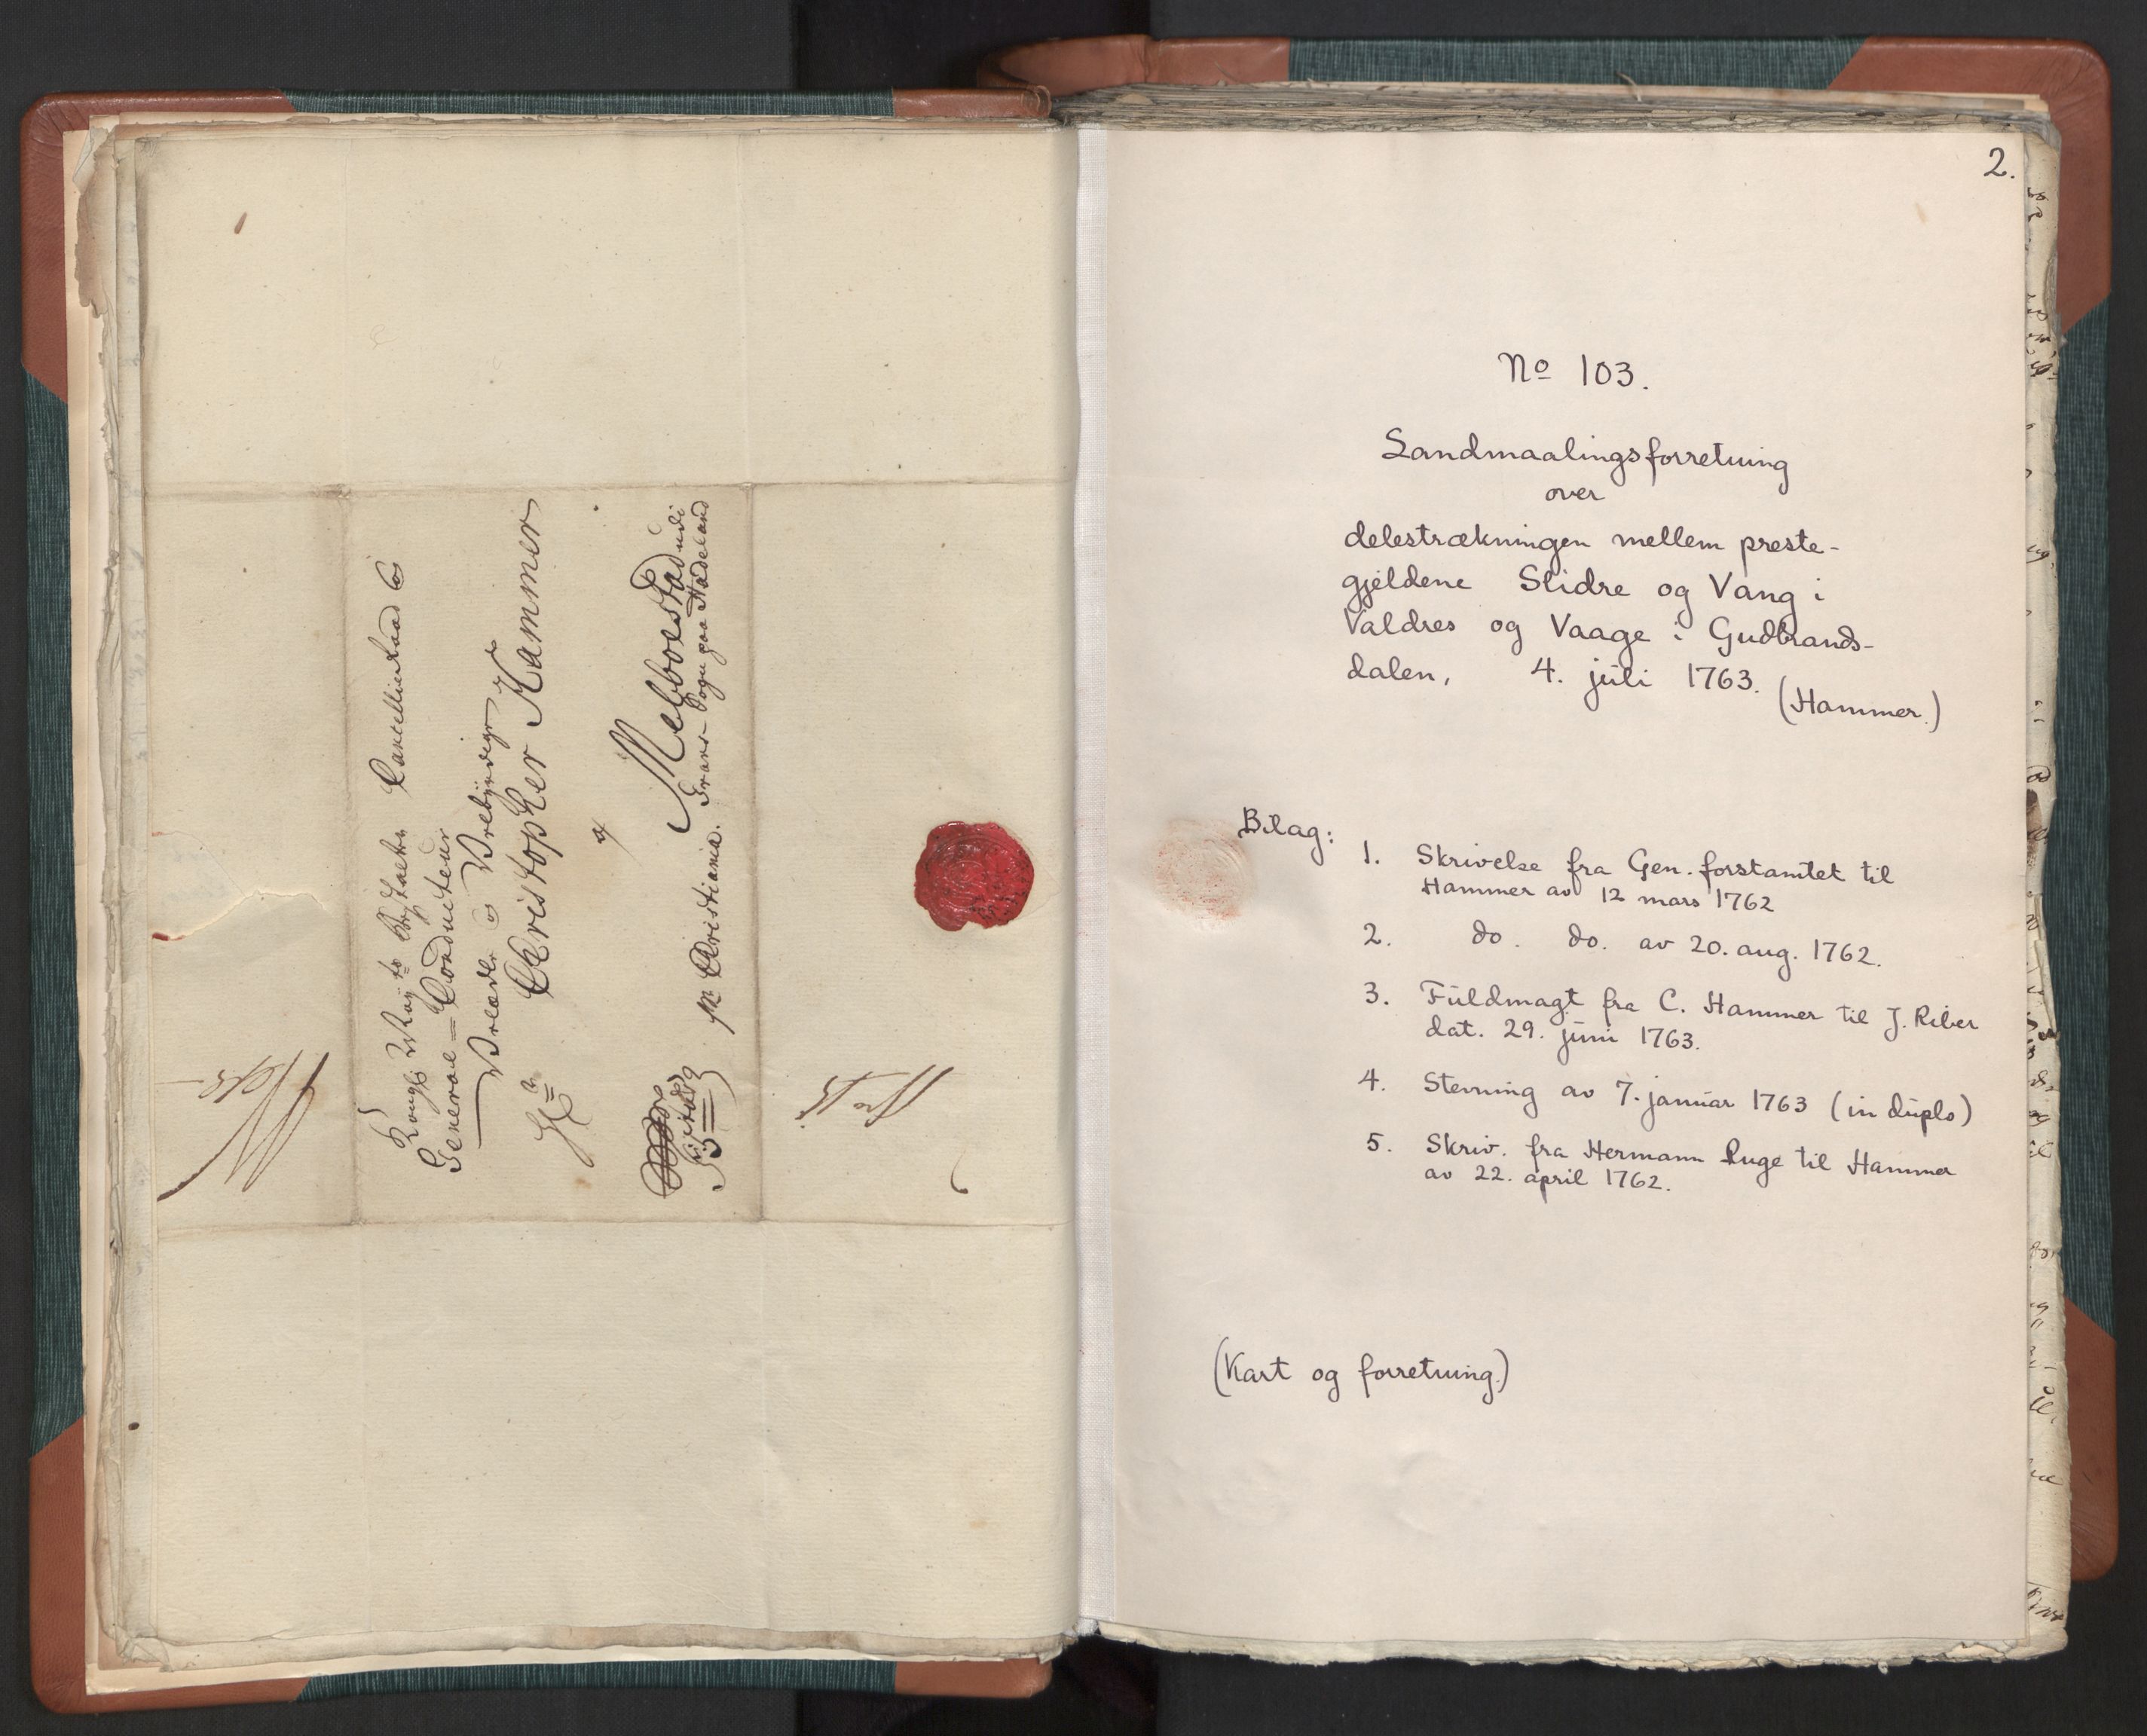 Kongl: May:ts Cancellieraad
General=Conducteur
Velædle og Velbyrdige
Hr Christopher Hammer
a
Melboestad udi
Grans Sogn paa Hadeland
pr Christiania.
2.
No 103.
Landmaalingsforretning
over
delestrækningen mellem preste-
gjeldene Slidre og Vang i
Valdres og Vaage i Gudbrands-
dalen, 4. juli 1763.
(Hammer.)
Bilag:
1. Skrivelse fra Gen. forstamtet til
Hammer av 12 mars 1762
2. do. do. av 20. aug. 1762.
3. Fuldmagt fra C. Hammer til J. Riber
dat. 29. juni 1763.
4. Stevning av 7. januar 1763 (in duplo)
5. Skriv. fra Hermann Ruge til Hammer
av 22. april 1762.
(Kart og forretning.)